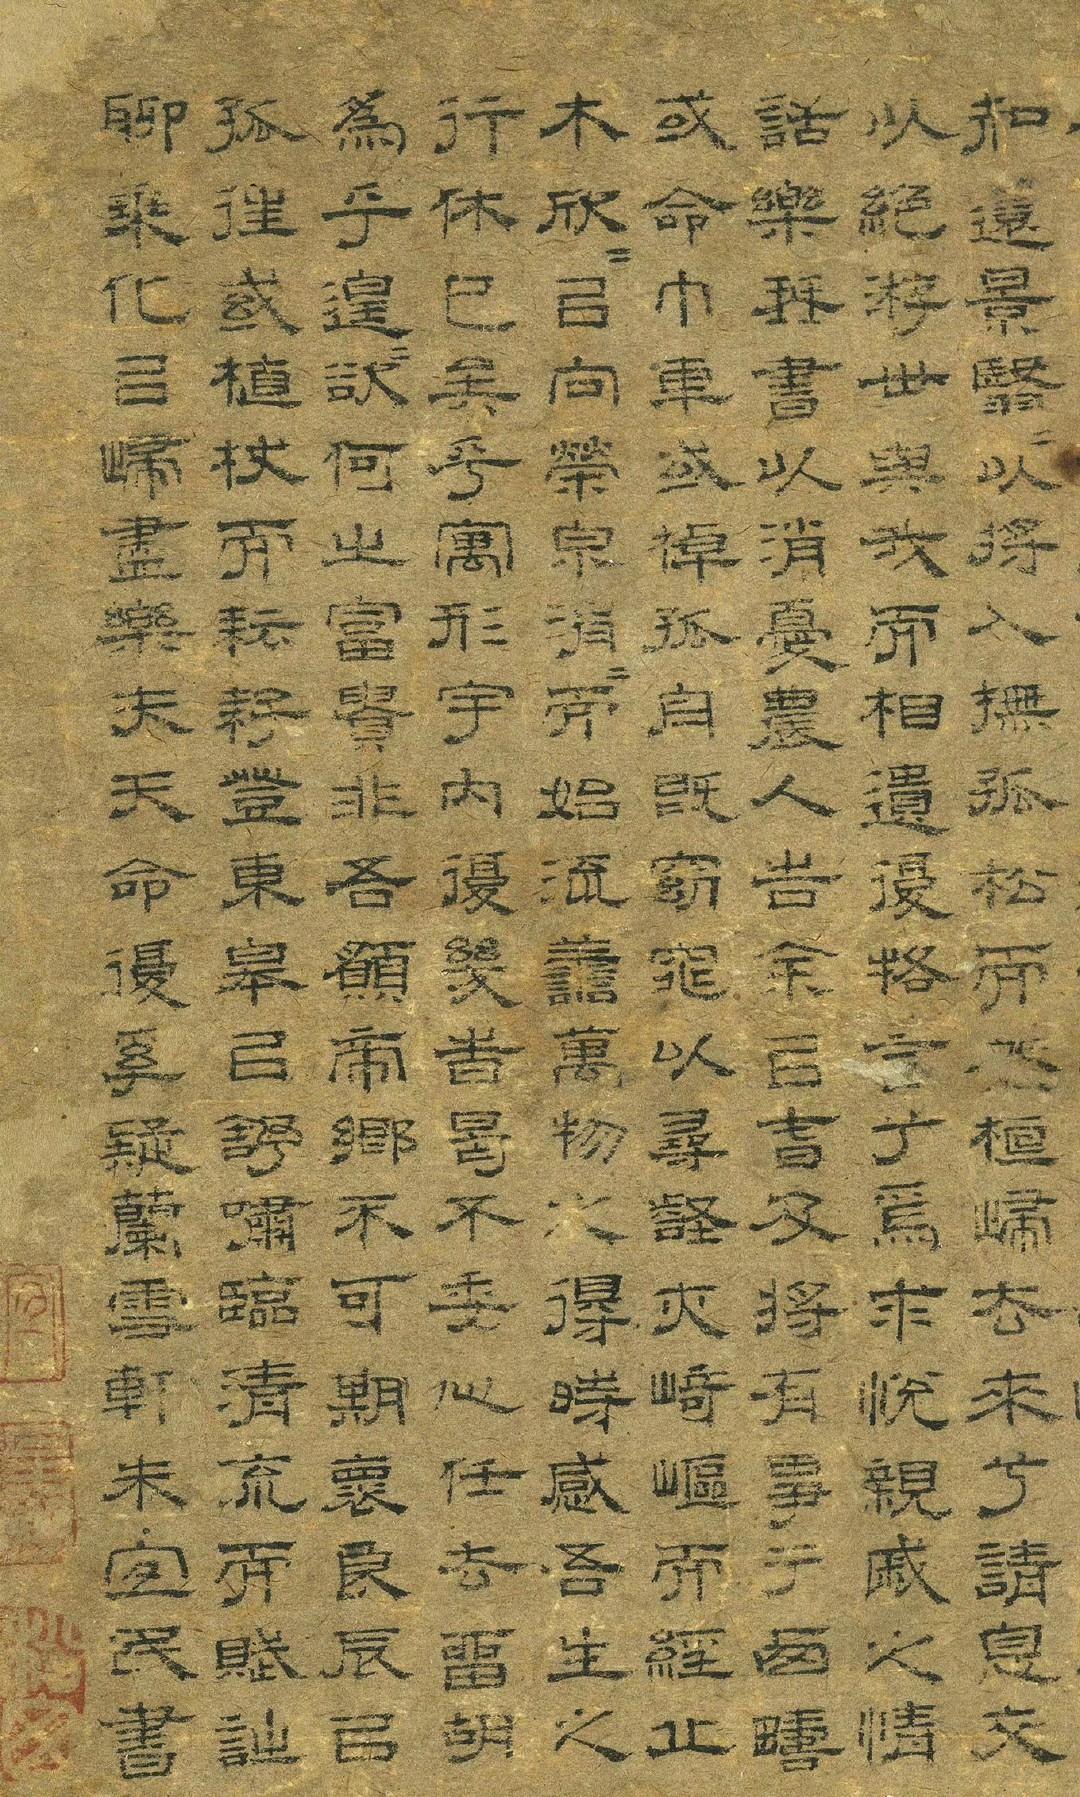 知還景翳〻以將入撫孤松而盤桓歸去來兮請息交
以絕游世與我而相遺復格言兮焉求悅親戚之情
話樂琴書以消憂農人告余㠯春及將有事于西疇
或命巾車或棹孤舟既窈窕以尋壑亦崎嶇而經丘
木欣〻㠯向榮泉涓〻而始流善萬物之得時感吾生之
行休已矣乎寓形宇內復幾時曷不委心任去留胡
為乎遑〻欲何之富貴非吾願帝鄉不可期懷良辰㠯
孤往或植杖而耘耔登東皋㠯舒嘯臨清流而賦詩
聊乘化㠯歸盡樂夫天命復奚疑蘭雪軒未定民書